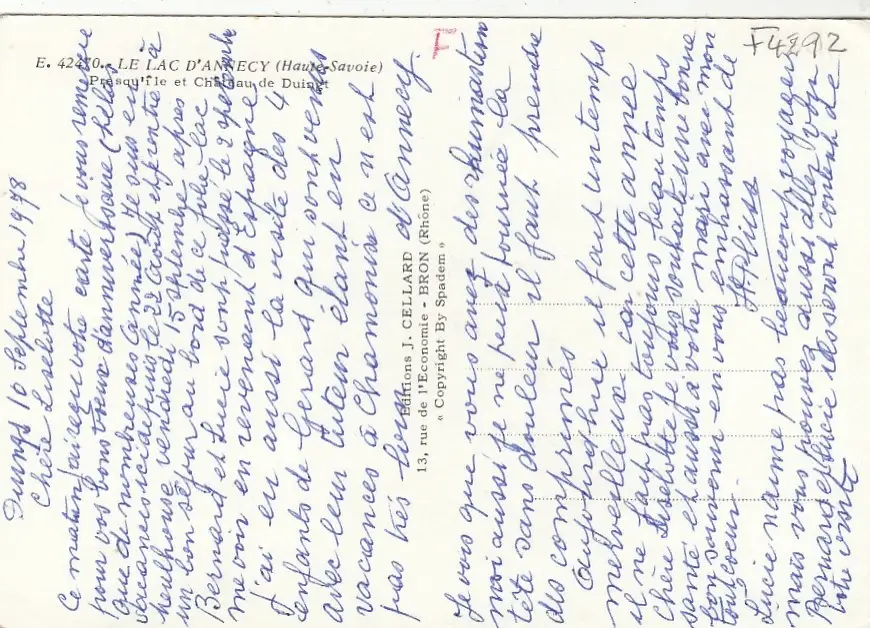 E. 42470. - LE LAC D'ANNECY (Haute-Savoie)
Presqu'île et Château de Duingt
F4292
T
Duingt 10 Septembre 1978
Chère Liselotte
Ce matin j'ai reçu votre carte je vous remercie
pour vos bons vœux d'anniversaire (hélas
que de nombreuses années) Je suis en
vacances ici depuis le 22 août et rentre à
Mulhouse vendredi 15 septembre après
un bon séjour au bord de ce joli lac
Bernard et Lucie sont passé le 2 septembre
me voir en revenant d'Espagne
J'ai eu aussi la visite des 4
enfants de Gerard qui sont venus
avec leur tuteur étant en
vacances à Chamonix ce n'est
pas très loin d'Annecy.
Editions J. CELLARD
13, rue de l'Economie - BRON (Rhône)
« Copyright By Spadem »
Je vois que vous avez des rhumastism
moi aussi je ne peut tourner la
tête sans douleur il faut prendre
des comprimés
Aujourd'hui il fait un temps
merveilleux car cette année
il ne fait pas toujours beau temps
Chère Liselotte je vous souhaite une bonne
santé et aussi à votre mari avec mon
bon souvenir en vous embrassant de
tout cœur.
Lucie n'aime pas beaucoup voyager
mais vous pouvez aussi aller voir
Bernard et Lucie ils seront content de
votre visite